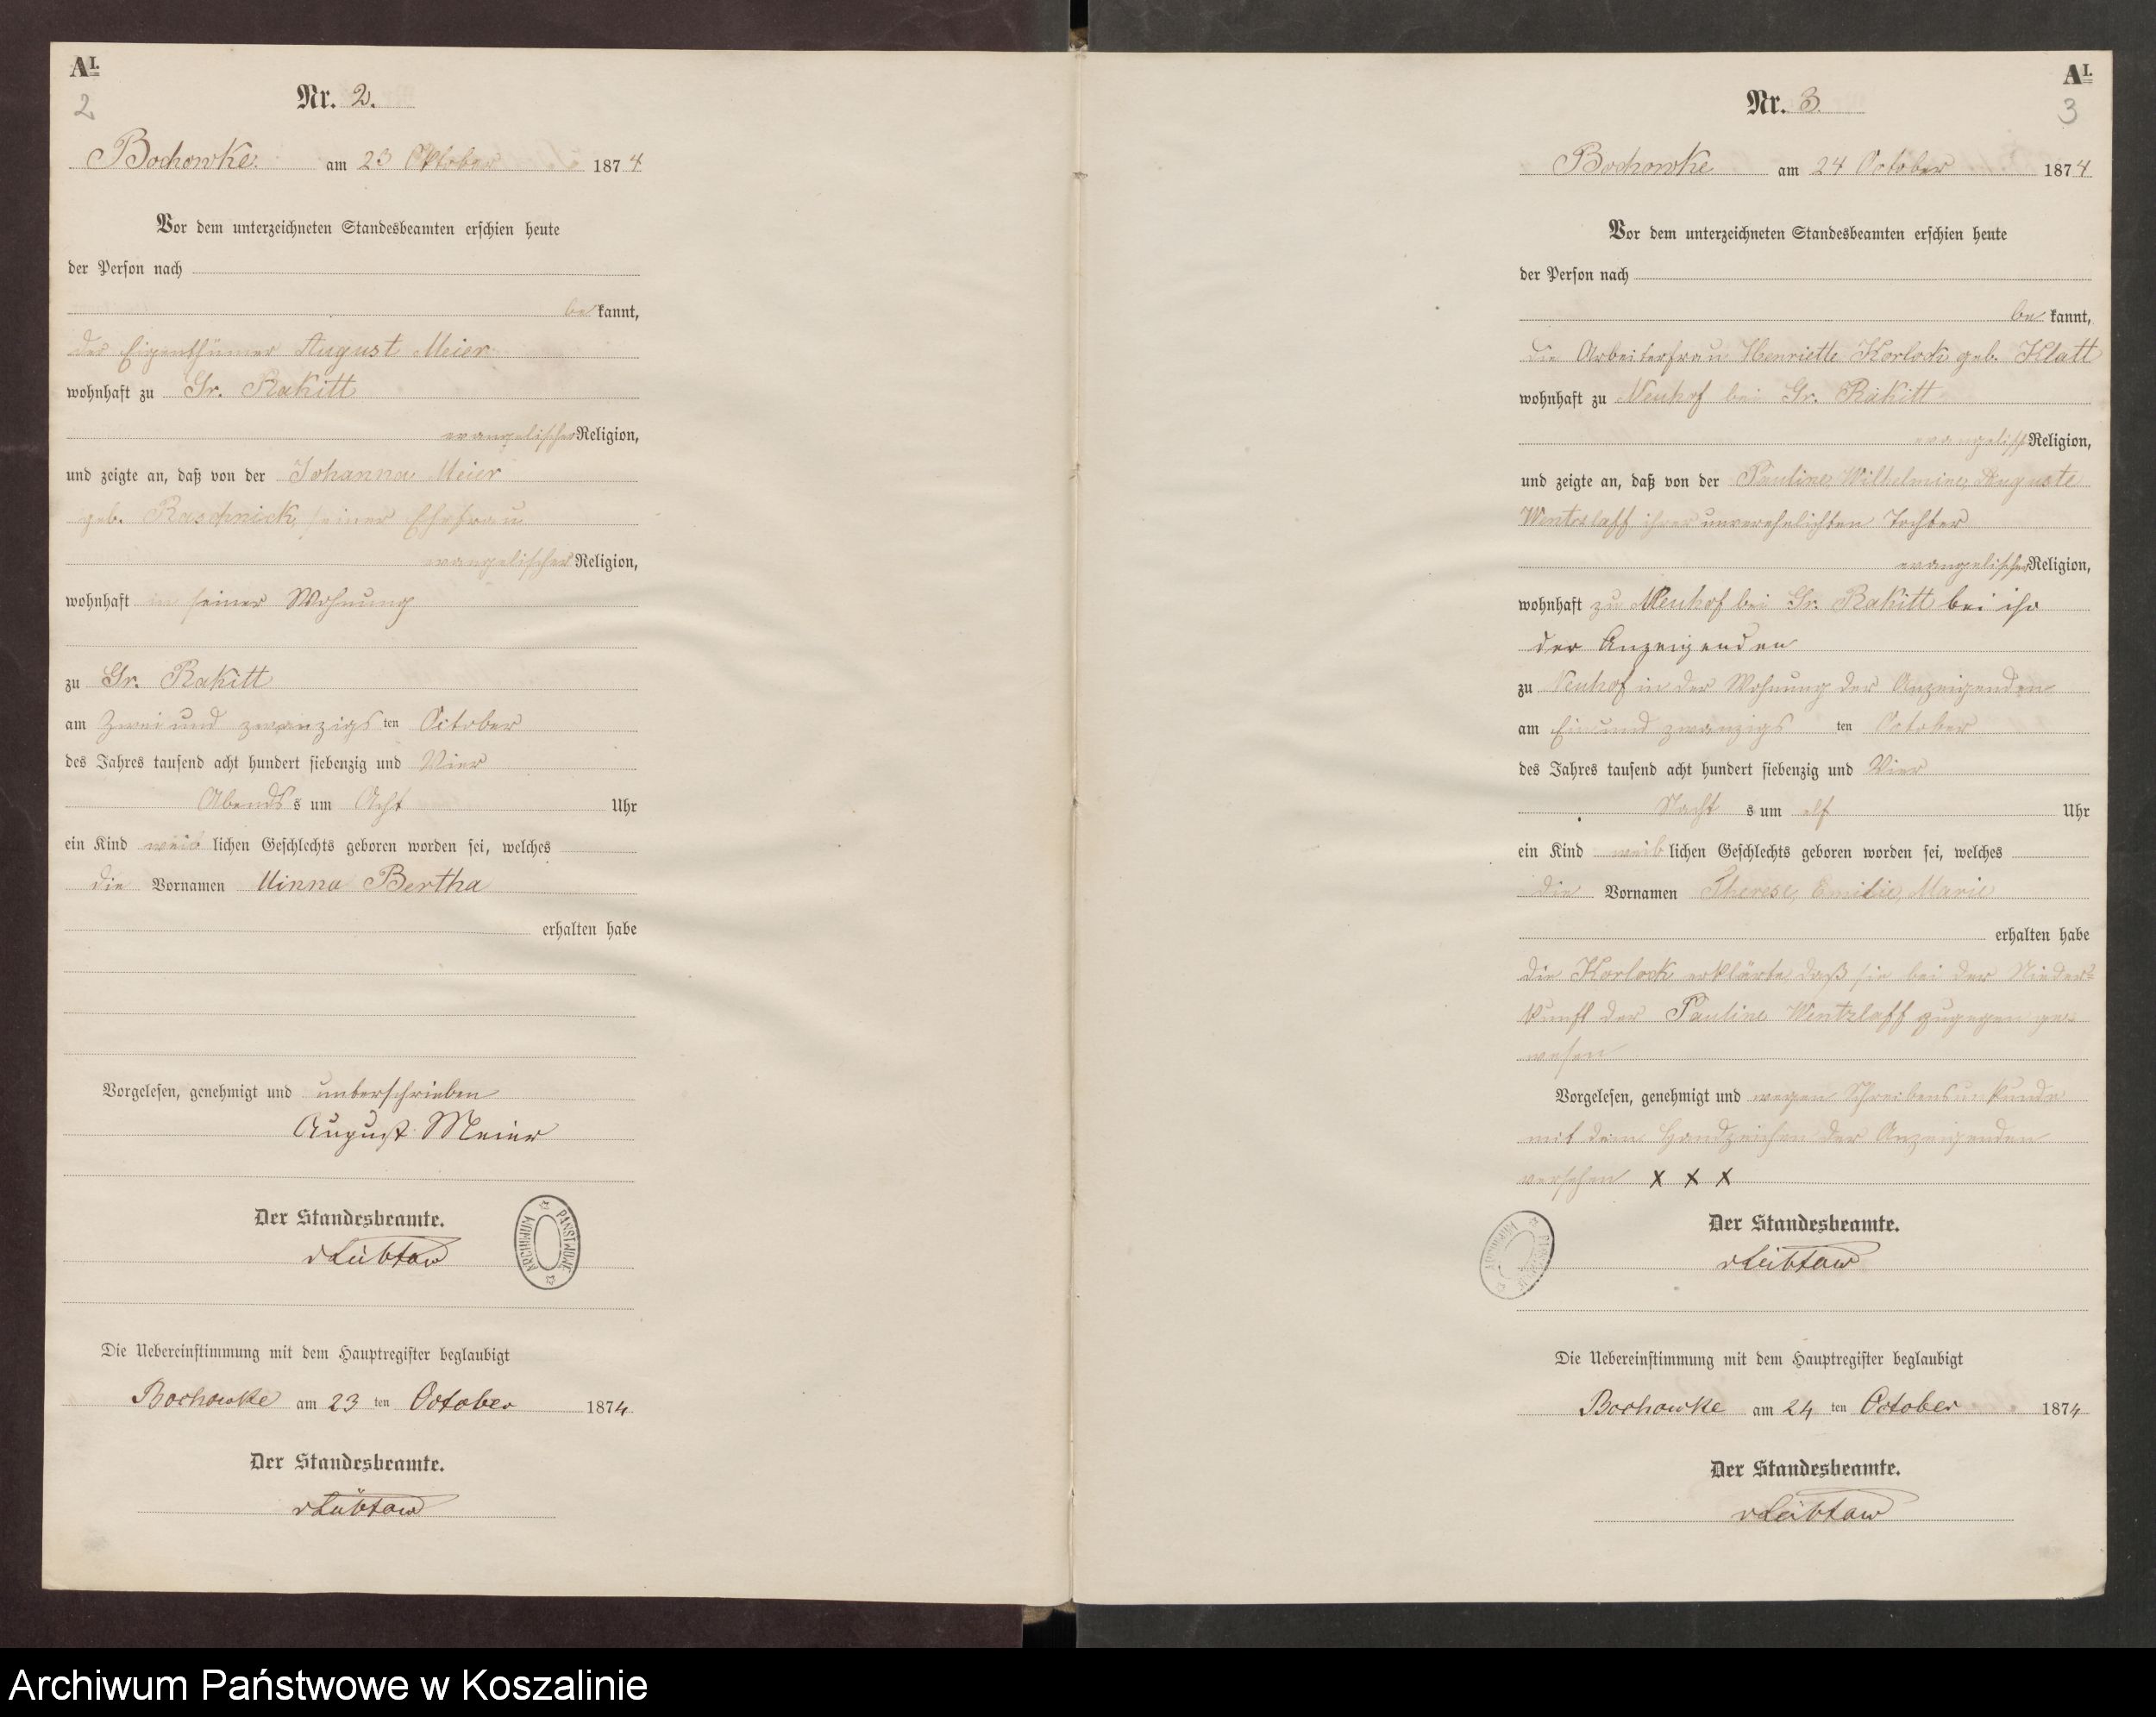 AI.
2
Nr. 2.
Bochowke. am 23 Oktober 1874
Vor dem unterzeichneten Standesbeamten erschien heute
der Person nach
be kannt,
der Eigenthümer August Meier
wohnhaft zu Gr. Rakitt
evangelischer Religion,
und zeigte an, daß von der Johanna Meier
geb. Raschnick, seiner Ehefrau
evangelischer Religion,
wohnhaft in seiner Wohnung
zu Gr. Rakitt
am Zwei und zwanzigs ten October
des Jahres tausend acht hundert siebenzig und Vier
Abends s um Acht Uhr
ein Kind weib lichen Geschlechts geboren worden sei, welches
die Vornamen Minna Bertha
erhalten habe
Vorgelesen, genehmigt und unterschrieben
August Meier
Der Standesbeamte.
vLübtow
ARCHIWUM PAŃSTWOWE
Die Uebereinstimmung mit dem Hauptregister beglaubigt
Bochowke am 23 ten October 1874
Der Standesbeamte.
vLübtow
AI.
3
Nr. 3.
Bochowke am 24 October 1874
Vor dem unterzeichneten Standesbeamten erschien heute
der Person nach
be kannt,
die Arbeiterfrau Henriette Korlock geb. Klatt
wohnhaft zu Neuhof bei Gr. Rakitt
evangelisch Religion,
und zeigte an, daß von der Pauline, Wilhelmine, Auguste
Wentzlaff ihrer unverehelichten Tochter
evangelischer Religion,
wohnhaft zu Neuhof bei Gr. Rakitt bei ihr
der Anzeigenden
zu Neuhof in der Wohnung der Anzeigenden
am Ein und zwanzigs ten October
des Jahres tausend acht hundert siebenzig und Vier
Nacht s um elf Uhr
ein Kind weib lichen Geschlechts geboren worden sei, welches
die Vornamen Therese, Emilie, Marie
erhalten habe
die Korlock erklärte, daß sie bei der Nieder-
kunft der Pauline Wentzlaff zugegen ge-
wesen
Vorgelesen, genehmigt und wegen Schreibensunkunde
mit dem Handzeichen der Anzeigenden
versehen x x x
Der Standesbeamte.
vLübtow
ARCHIWUM PAŃSTWOWE
Die Uebereinstimmung mit dem Hauptregister beglaubigt
Bochowke am 24 ten October 1874
Der Standesbeamte.
vLübtow
Archiwum Państwowe w Koszalinie